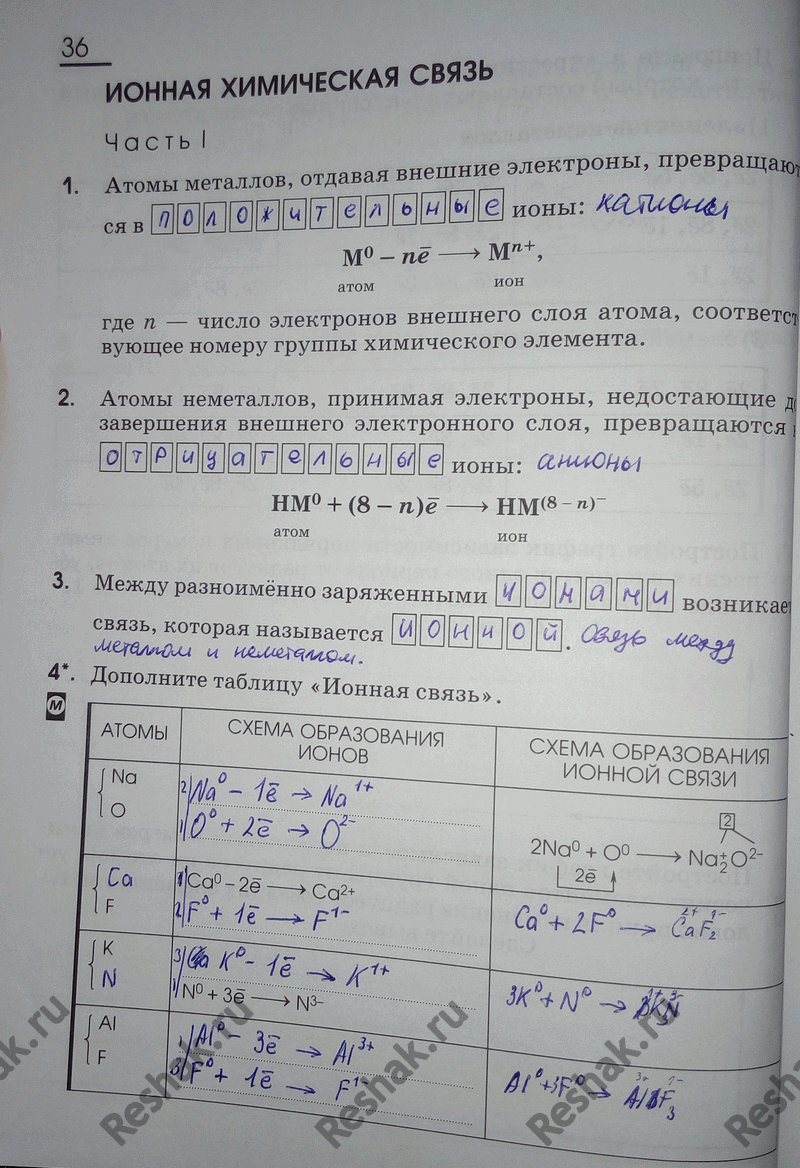 36
ИОННАЯ ХИМИЧЕСКАЯ СВЯЗЬ
Часть I
1. Атомы металлов, отдавая внешние электроны, превращают
ся в положительные ионы: катионы
M⁰ – nē ⟶ Mⁿ⁺,
атом ион
где n — число электронов внешнего слоя атома, соответст
вующее номеру группы химического элемента.
2. Атомы неметаллов, принимая электроны, недостающие д
завершения внешнего электронного слоя, превращаются
отрицательные ионы: анионы
НМ⁰ + (8 – n)ē ⟶ НМ⁽⁸ ⁻ ⁿ⁾⁻
атом ион
3. Между разноимённо заряженными ионами возникает
связь, которая называется ионной. Связь между
металлом и неметаллом.
4*. Дополните таблицу «Ионная связь».
М
АТОМЫ СХЕМА ОБРАЗОВАНИЯ ИОНОВ СХЕМА ОБРАЗОВАНИЯ ИОННОЙ СВЯЗИ
Na 2) Na⁰ – 1ē → Na¹⁺
O 1) O⁰ + 2ē → O²⁻
2
2Na⁰ + O⁰ ⟶ Na₂⁺O²⁻
2ē
Ca 1) Ca⁰ – 2ē ⟶ Ca²⁺
F 2) F⁰ + 1ē → F¹⁻
Ca⁰ + 2F⁰ → Ca²⁺F₂¹⁻
K 3) K⁰ – 1ē → K¹⁺
N 1) N⁰ + 3ē ⟶ N³⁻
3K⁰ + N⁰ →
Al 1) Al⁰ – 3ē → Al³⁺
F 3) F⁰ + 1ē → F¹⁻
Al⁰ + 3F⁰ → Al³⁺F₃¹⁻
Reshak.ru
Reshak.ru
Reshak.ru
Reshak.ru